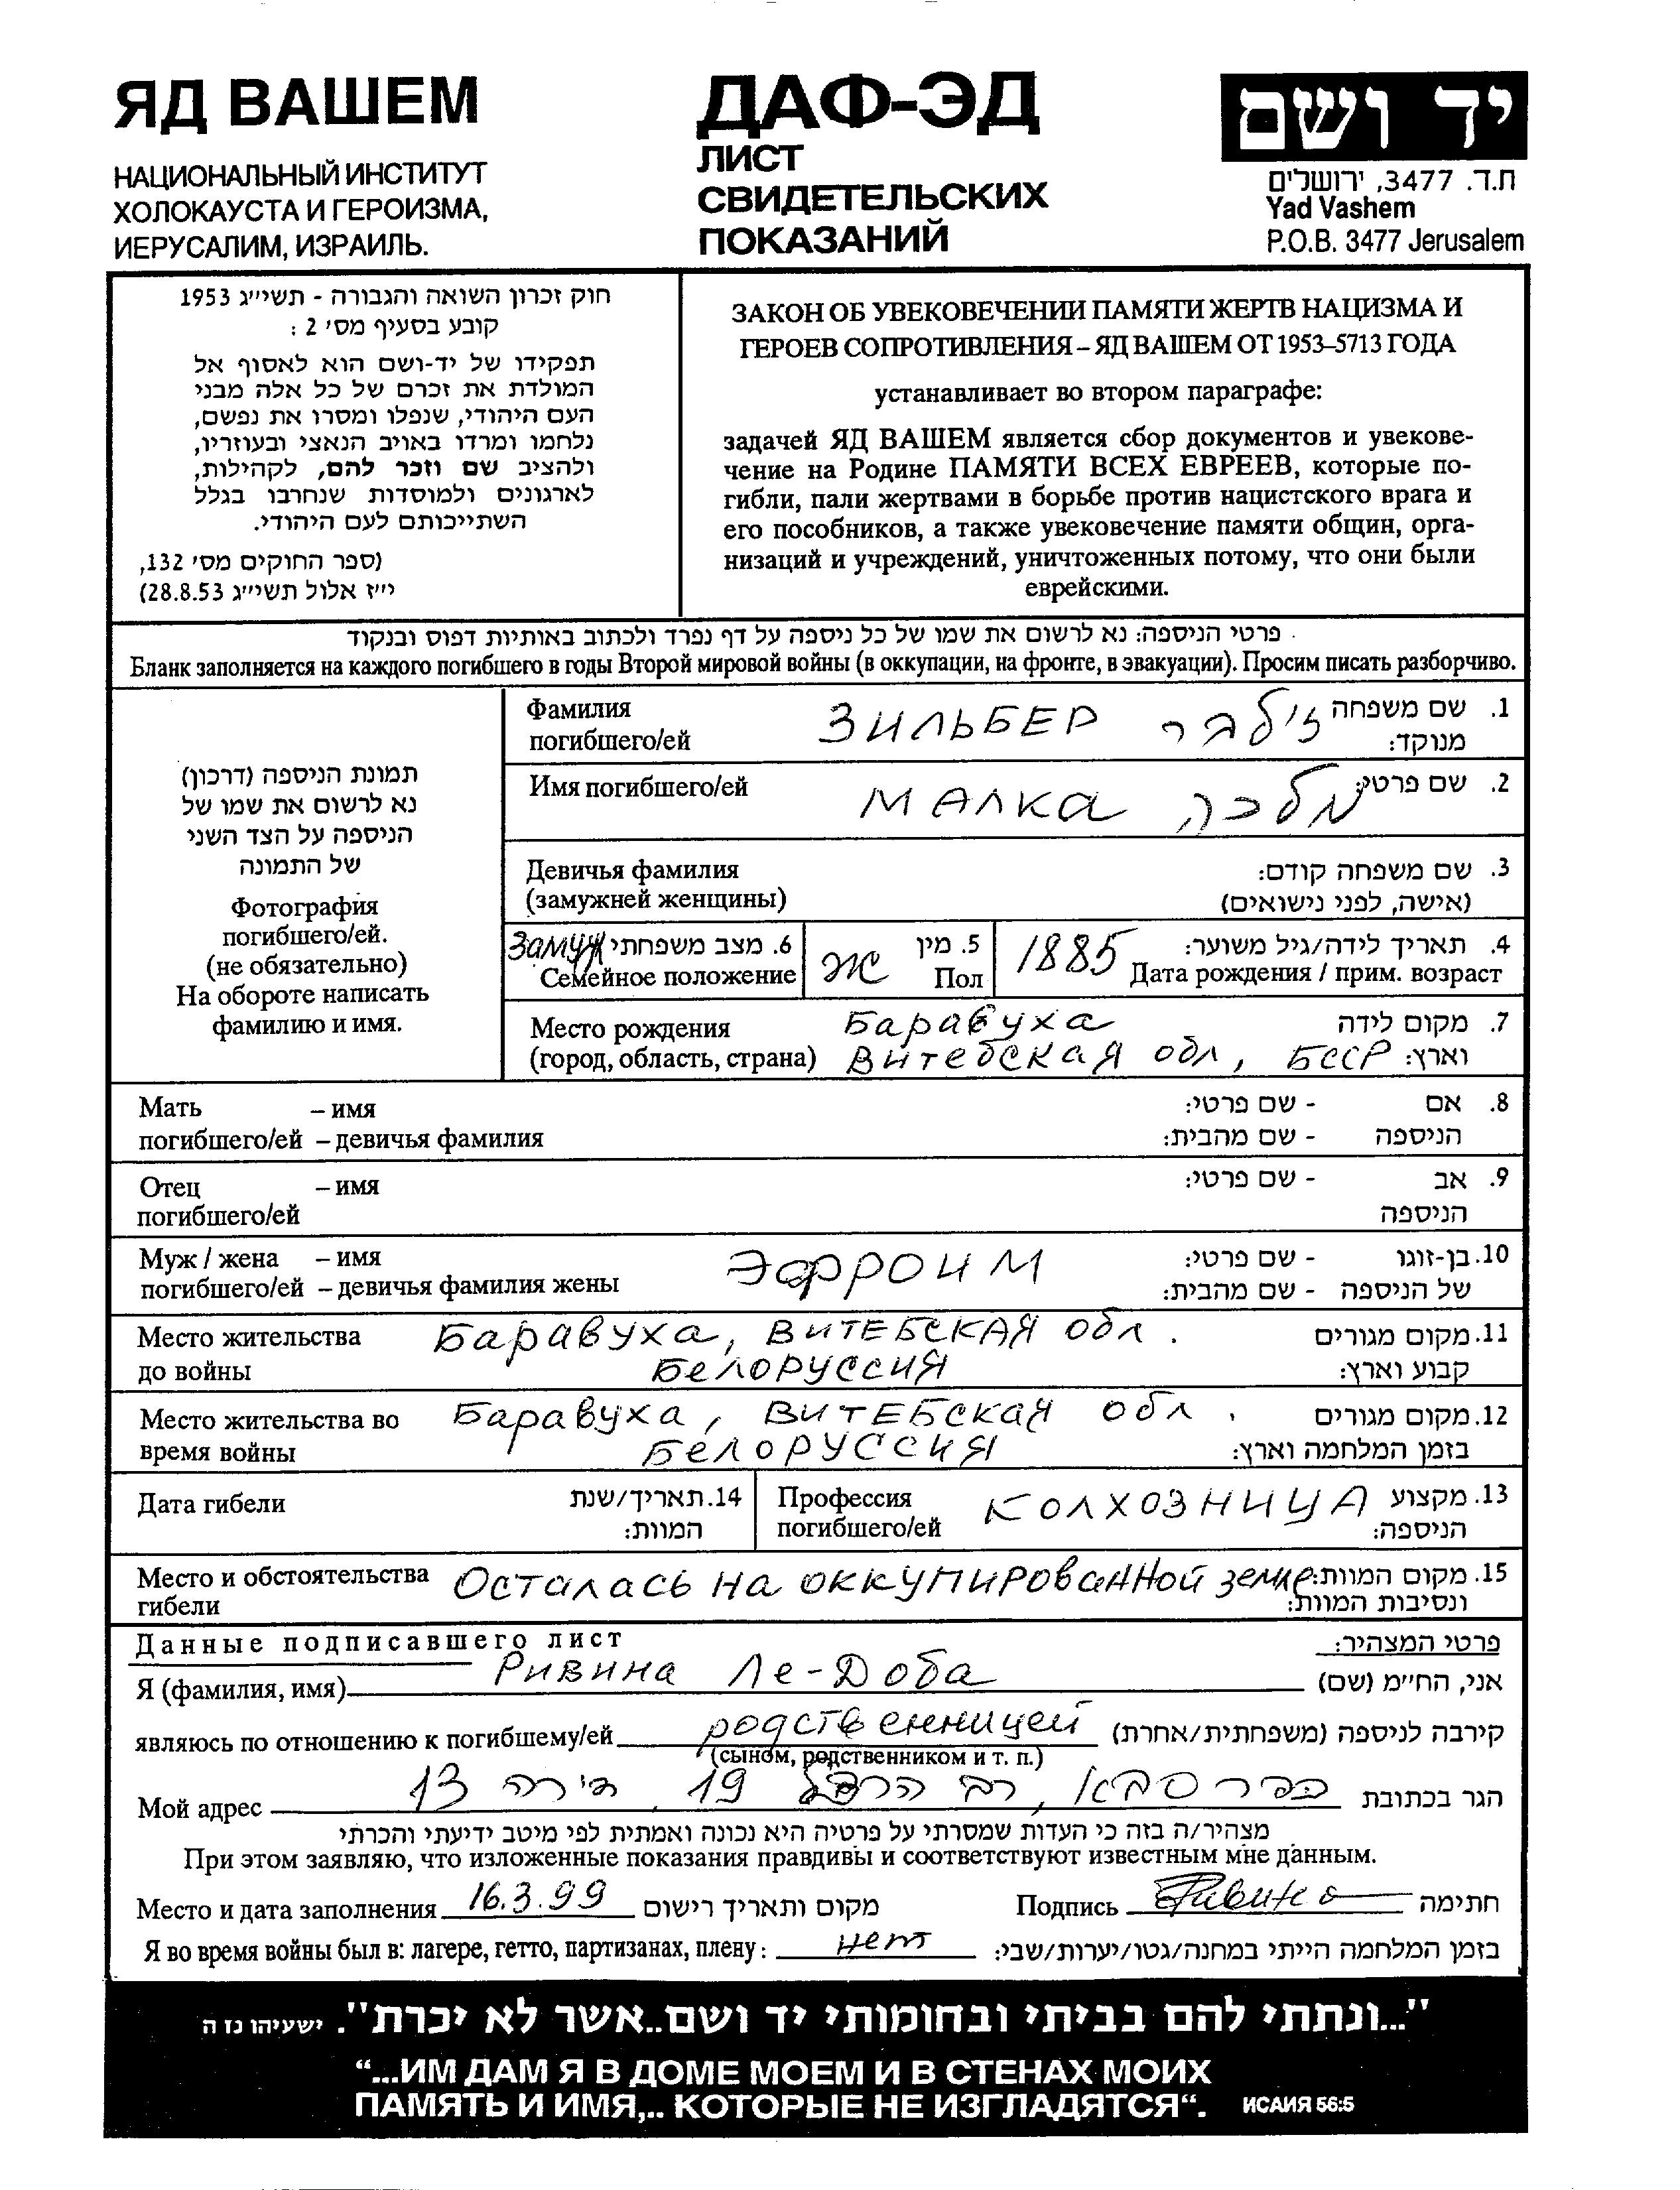 ЯД ВАШЕМ
НАЦИОНАЛЬНЫЙ ИНСТИТУТ
ХОЛОКАУСТА И ГЕРОИЗМА,
ИЕРУСАЛИМ, ИЗРАИЛЬ.
ДАФ-ЭД
ЛИСТ
СВИДЕТЕЛЬСКИХ
ПОКАЗАНИЙ
יד ושם
ת.ד. 3477, ירושלים
Yad Vashem
P.O.B. 3477 Jerusalem
חוק זכרון השואה והגבורה - תשי״ג 1953
קובע בסעיף מס׳ 2 :
תפקידו של יד-ושם הוא לאסוף אל
המולדת את זכרם של כל אלה מבני
העם היהודי, שנפלו ומסרו את נפשם,
נלחמו ומרדו באויב הנאצי ובעוזריו,
ולהציב שם וזכר להם, לקהילות,
לארגונים ולמוסדות שנחרבו בגלל
השתייכותם לעם היהודי.
(ספר החוקים מס׳ 132,
י״ז אלול תשי״ג 28.8.53)
ЗАКОН ОБ УВЕКОВЕЧЕНИИ ПАМЯТИ ЖЕРТВ НАЦИЗМА И
ГЕРОЕВ СОПРОТИВЛЕНИЯ – ЯД ВАШЕМ ОТ 1953–5713 ГОДА
устанавливает во втором параграфе:
задачей ЯД ВАШЕМ является сбор документов и увекове-
чение на Родине ПАМЯТИ ВСЕХ ЕВРЕЕВ, которые по-
гибли, пали жертвами в борьбе против нацистского врага и
его пособников, а также увековечение памяти общин, орга-
низаций и учреждений, уничтоженных потому, что они были
еврейскими.
פרטי הניספה: נא לרשום את שמו של כל ניספה על דף נפרד ולכתוב באותיות דפוס ובנקוד
Бланк заполняется на каждого погибшего в годы Второй мировой войны (в оккупации, на фронте, в эвакуации). Просим писать разборчиво.
תמונת הניספה (דרכון)
נא לרשום את שמו של
הניספה על הצד השני
של התמונה
Фотография
погибшего/ей.
(не обязательно)
На обороте написать
фамилию и имя.
Фамилия ЗИЛЬБЕР זילבר 1. שם משפחה
погибшего/ей מנוקד:
Имя погибшего/ей МАЛКА מלכה 2. שם פרטי:
Девичья фамилия 3. שם משפחה קודם:
(замужней женщины) (אישה, לפני נישואים)
Замуж 6. מצב משפחתי
Семейное положение
Ж 5. מין
Пол
1885 4. תאריך לידה/גיל משוער:
Дата рождения / прим. возраст
Место рождения Баравуха 7. מקום לידה
(город, область, страна) Витебская обл, БССР וארץ:
Мать – имя - שם פרטי: 8. אם
погибшего/ей – девичья фамилия - שם מהבית: הניספה
Отец – имя - שם פרטי: 9. אב
погибшего/ей הניספה
Муж / жена – имя Эфроим - שם פרטי: 10. בן-זוגו
погибшего/ей – девичья фамилия жены - שם מהבית: של הניספה
Место жительства Баравуха, ВИТЕБСКАЯ обл. 11. מקום מגורים
до войны БЕЛОРУССИЯ קבוע וארץ:
Место жительства во Баравуха, ВИТЕБСКАЯ обл. 12. מקום מגורים
время войны БЕЛОРУССИЯ בזמן המלחמה וארץ:
Дата гибели 14. תאריך/שנת
המוות:
Профессия КОЛХОЗНИЦА 13. מקצוע
погибшего/ей הניספה:
Место и обстоятельства Осталась на оккупированной земле 15. מקום המוות:
гибели ונסיבות המוות:
Данные подписавшего лист פרטי המצהיר:
Я (фамилия, имя) Ривина Ле-Доба אני, החי״מ (שם)
являюсь по отношению к погибшему/ей родственницей קירבה לניספה (משפחתית/אחרת)
(сыном, родственником и т. п.)
Мой адрес כפר סבא, 19, דירה 13 הגר בכתובת
מצהיר/ה בזה כי העדות שמסרתי על פרטיה היא נכונה ואמתית לפי מיטב ידיעתי והכרתי
При этом заявляю, что изложенные показания правдивы и соответствуют известным мне данным.
Место и дата заполнения 16.3.99 מקום ותאריך רישום Подпись Ривина חתימה
Я во время войны был в: лагере, гетто, партизанах, плену: нет בזמן המלחמה הייתי במחנה/גטו/יערות/שבי:
"...ונתתי להם בביתי ובחומותי יד ושם..אשר לא יכרת". ישעיהו נז ה
“...ИМ ДАМ Я В ДОМЕ МОЕМ И В СТЕНАХ МОИХ
ПАМЯТЬ И ИМЯ,.. КОТОРЫЕ НЕ ИЗГЛАДЯТСЯ“. ИСАИЯ 56:5